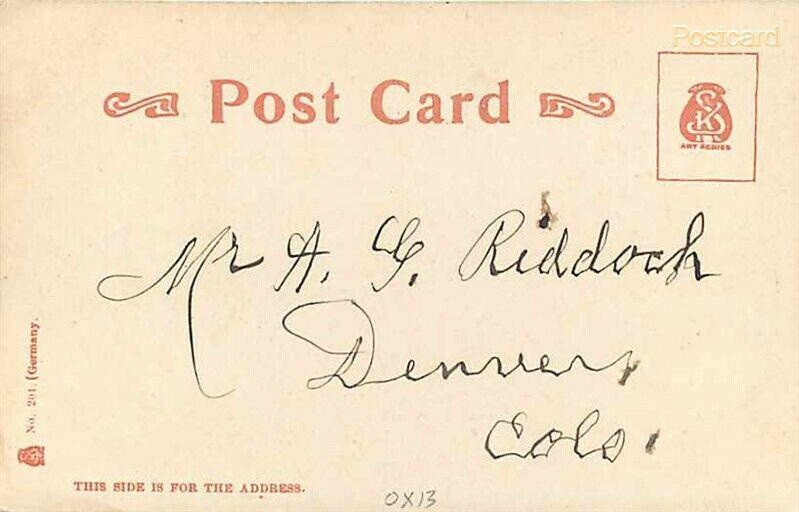 Postcard
Post Card
SK
ART SERIES
Mr A. G. Riddoch
Denver,
Colo.
No. 201. (Germany.
THIS SIDE IS FOR THE ADDRESS.
0X13